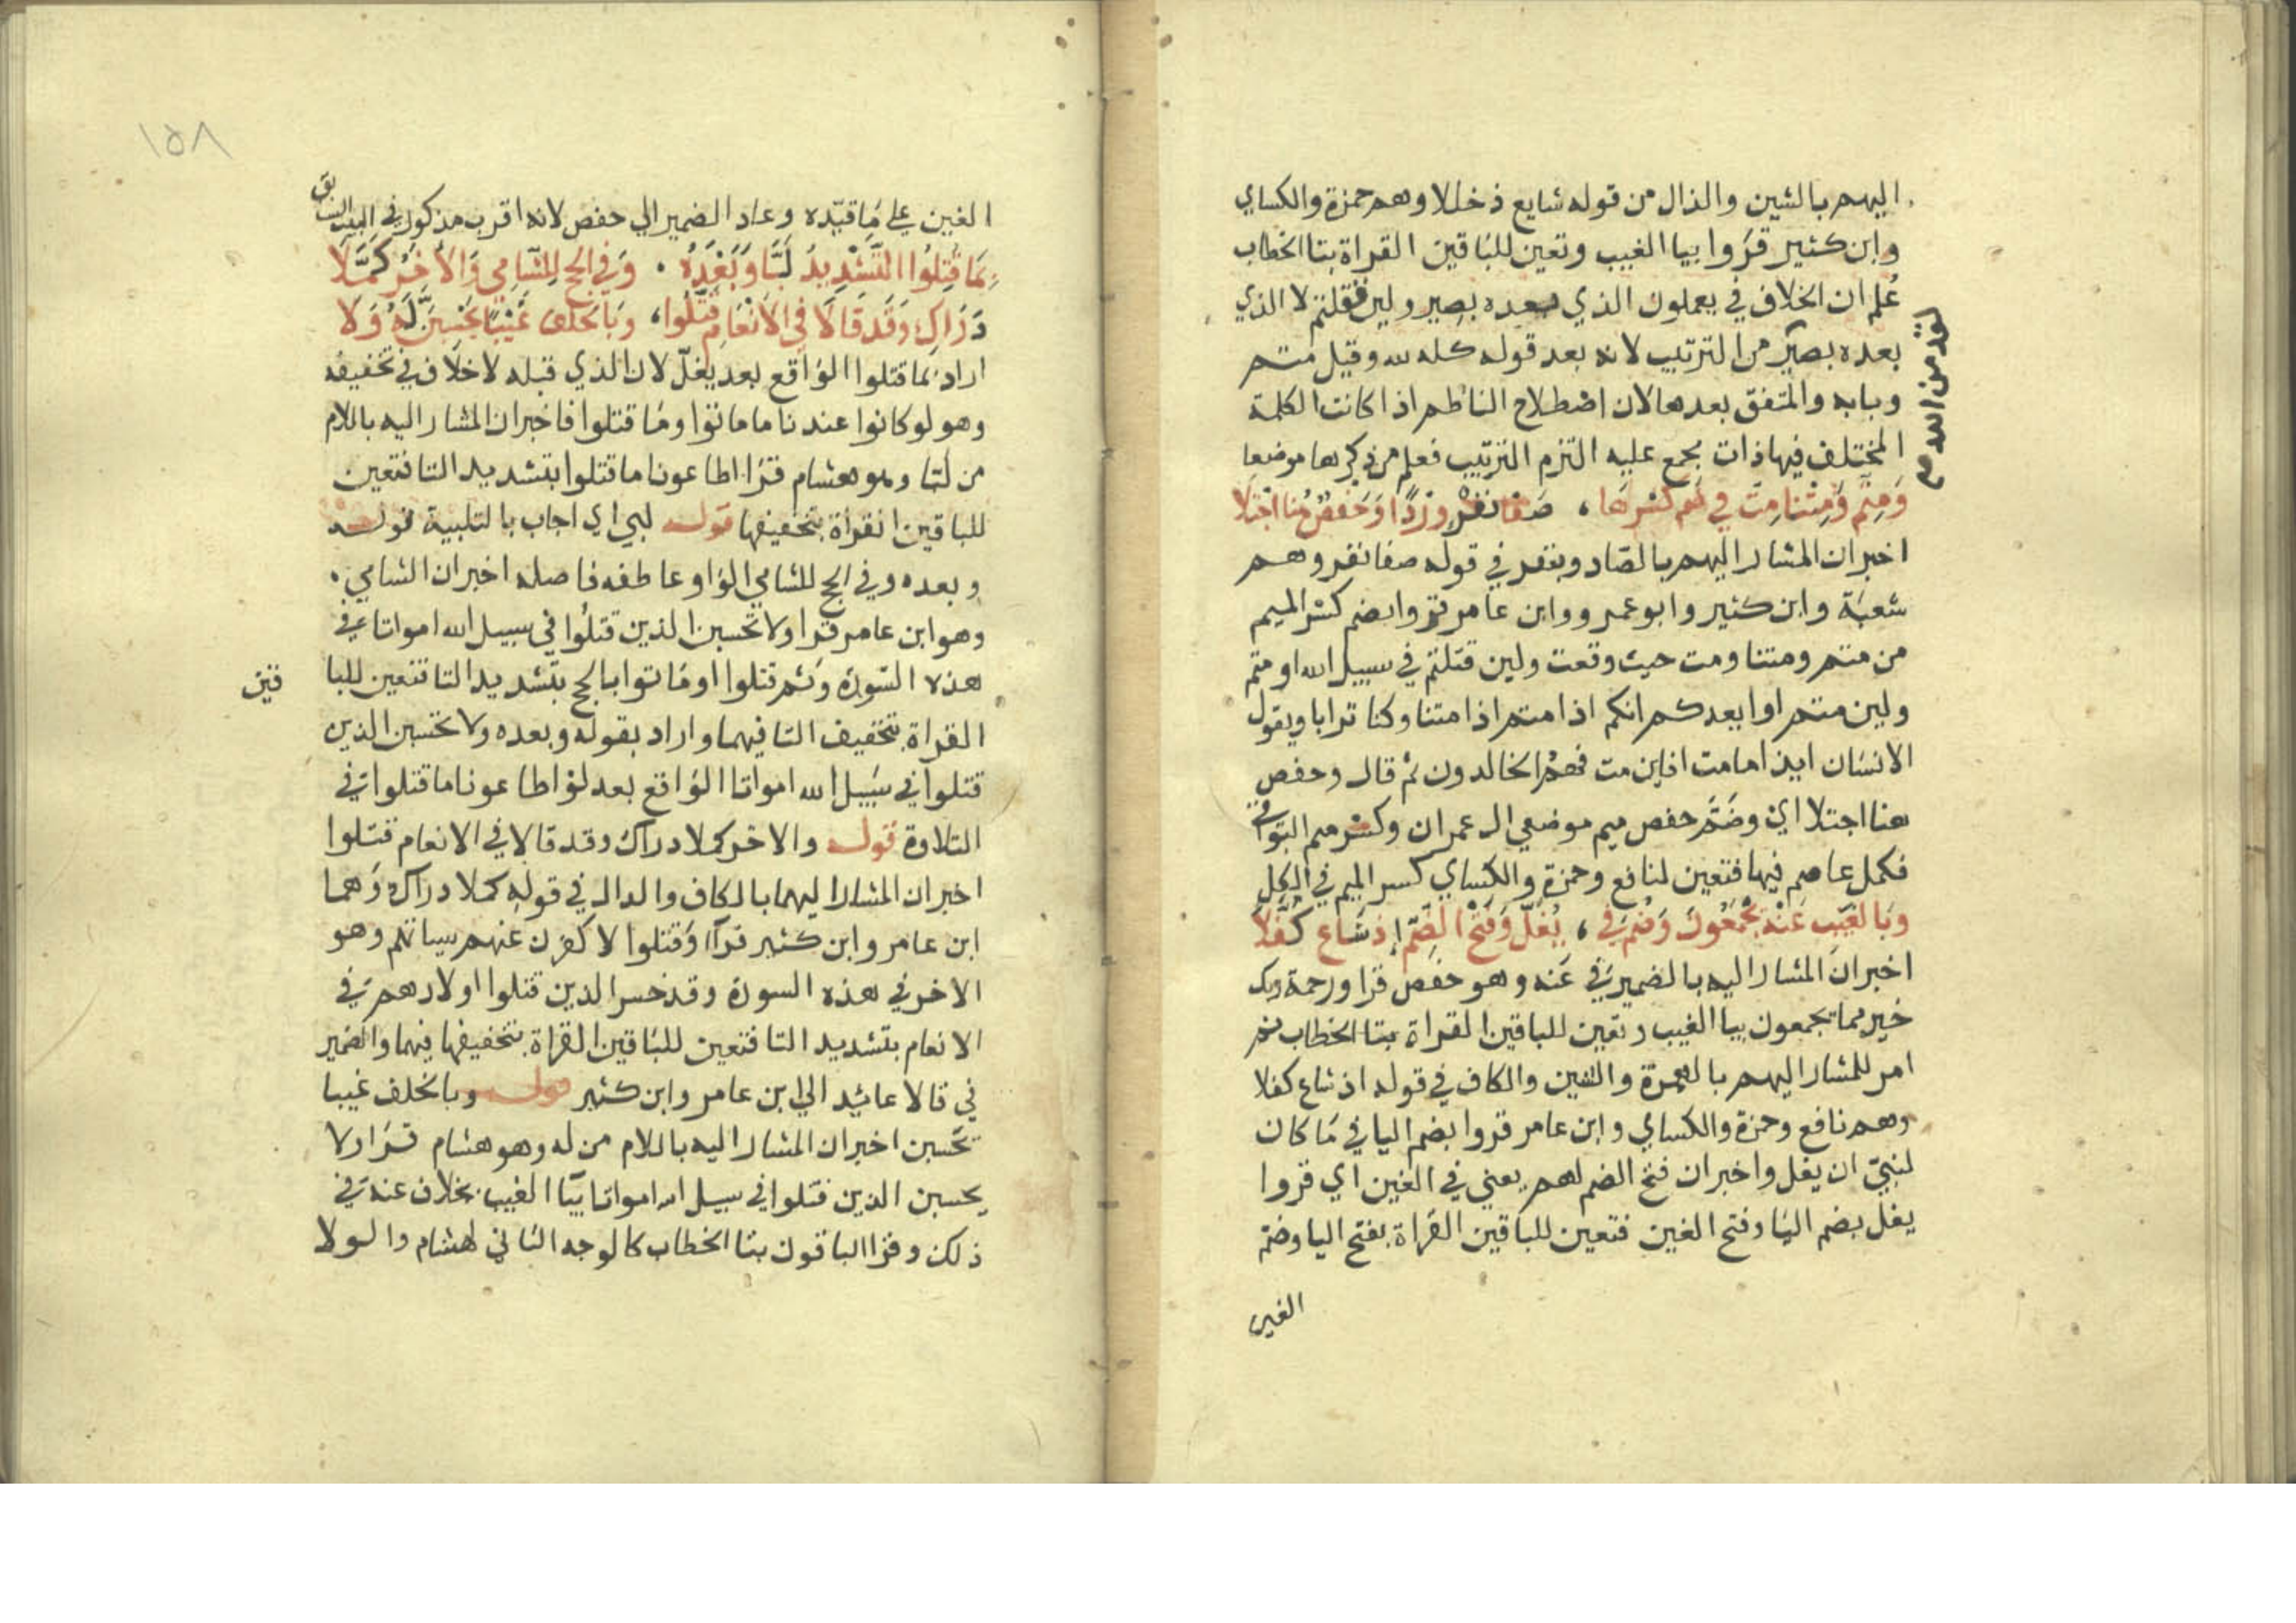 اليهم بالشين والذال من قوله شايع دخللا وهم حمزة والكساي
وابن كثير قروا بيا الغيب وتعين للباقين القراة بتا الخطاب
عُلم ان الخلاف في يعملون الذي بعده بصير ولين قتلتم لا الذي
بعده بصير من الترتيب لانه بعد قوله كله لله وقيل متم
وبابه والمتفق بعدها لان اصطلاح الناظم اذا كانت الكلمة
المختلف فيها ذات مجمع عليه التزم الترتيب فعلم من ذكرها موضعا
وَمِتُّم وَمِتْنَا مِتَّ في ضم كسرها ، صفا نفر وِرْدًا وَحَفصٌ هُنا اجتلا
اخبر ان المشار اليهم بالصاد وبنفر في قوله صفا نفر وهم
شعبة وابن كثير وابو عمرو وابن عامر قروا بضم كسر الميم
من متم ومتنا ومت حيث وقعت ولين قتلتم في سبيل الله او متم
ولين متم اوا يعدكم انكم اذا متم اذا متنا وكنا ترابا ويقول
الانسان ايذا ما مت افاين مت فهم الخالدون ثم قال وحفص
هنا اجتلا اي وضم حفص ميم موضعي ال عمران وكسر ميم البواقي
فكمل عاصم فيها فتعين لنافع وحمزة والكساي كسر الميم في الكل
وبالغيب عَنه يجْمَعُونَ وَضُم في ، يَغُلَّ وَفَتْح الضّم إذ شَاع كُفِّلَا
اخبر ان المشار اليه بالضمير في عنه وهو حفص قرا ورحمة
خير مما يجمعون بيا الغيب وتعين للباقين القراة بتا الخطاب ثم
امر للمشار اليهم بالهمزة والشين والكاف في قوله اذ شاع كفلا
وهم نافع وحمزة والكساي وابن عامر قروا بضم اليا في ما كان
لنبيّ ان يغل واخبر ان فتح الضم لهم يعني في الغين اي قروا
يغل بضم اليا وفتح الغين فتعين للباقين القراة بفتح اليا وضم
الغين
لقد من الله
١٥٨
الغين على ما قيّده وعاد الضمير الي حفص لانه اقرب مذكور في البيت السابق
بِمَا قُتِلُوا التَّشْدِيدُ لَبَّا وَبَعْدَهُ . وَفي الحج لِلشَّامِي وَالأخِرُ كَمَّلَا
دَرَاكِ وَقَد قَالَا في الأنْعَام قَتَّلُوا ، وَبالخلف غَيْبًا يَحْسِبَنَّ لَهُ وَلَا
اراد بما قتلوا الواقع بعد يغلّ لان الذي قبله لا خلاف في تخفيفه
وهو لو كانوا عندنا ما ماتوا وما قتلوا فاخبر ان المشار اليه باللام
من لبا وهو هشام قرا اطاعونا ما قتلوا بتشديد التا فتعين
للباقين القراة بتخفيفها قوله لبي اي اجاب بالتلبية قوله
وبعده وفي الحج للشامي الواو عاطفه فاصله اخبر ان الشامي .
وهو ابن عامر قرا ولا تحسبن الذين قتلوا في سبيل الله امواتا في
هذه السورة وثم قتلوا او ماتوا بالحج بتشديد التا فتعين للبا
قين
القراة بتخفيف التا فيهما واراد بقوله وبعده ولا تحسبن الذين
قتلوا في سبيل الله امواتا الواقع بعد لو اطاعونا ما قتلوا في
التلاوة قوله والاخر كملا دراك وقد قالا في الانعام قتلوا
اخبر ان المشار اليهما بالكاف والدال في قوله كملا دراك وهما
ابن عامر وابن كثير قرآ وقتلوا لاكفرن عنهم سياتهم وهو
الاخر في هذه السورة وقد خسر الذين قتلوا اولادهم في
الانعام بتشديد التا فتعين للباقين القراة بتخفيفها فيهما والضمير
في قالا عائد الي ابن عامر وابن كثير قوله وبالخلف غيبا
تحسبن اخبر ان المشار اليه باللام من له وهو هشام قرا ولا
يحسبن الذين قتلوا في سبيل الله امواتا بيا الغيب بخلاف عنه في
ذلك وقرا الباقون بتا الخطاب كالوجه الثاني لهشام والولا